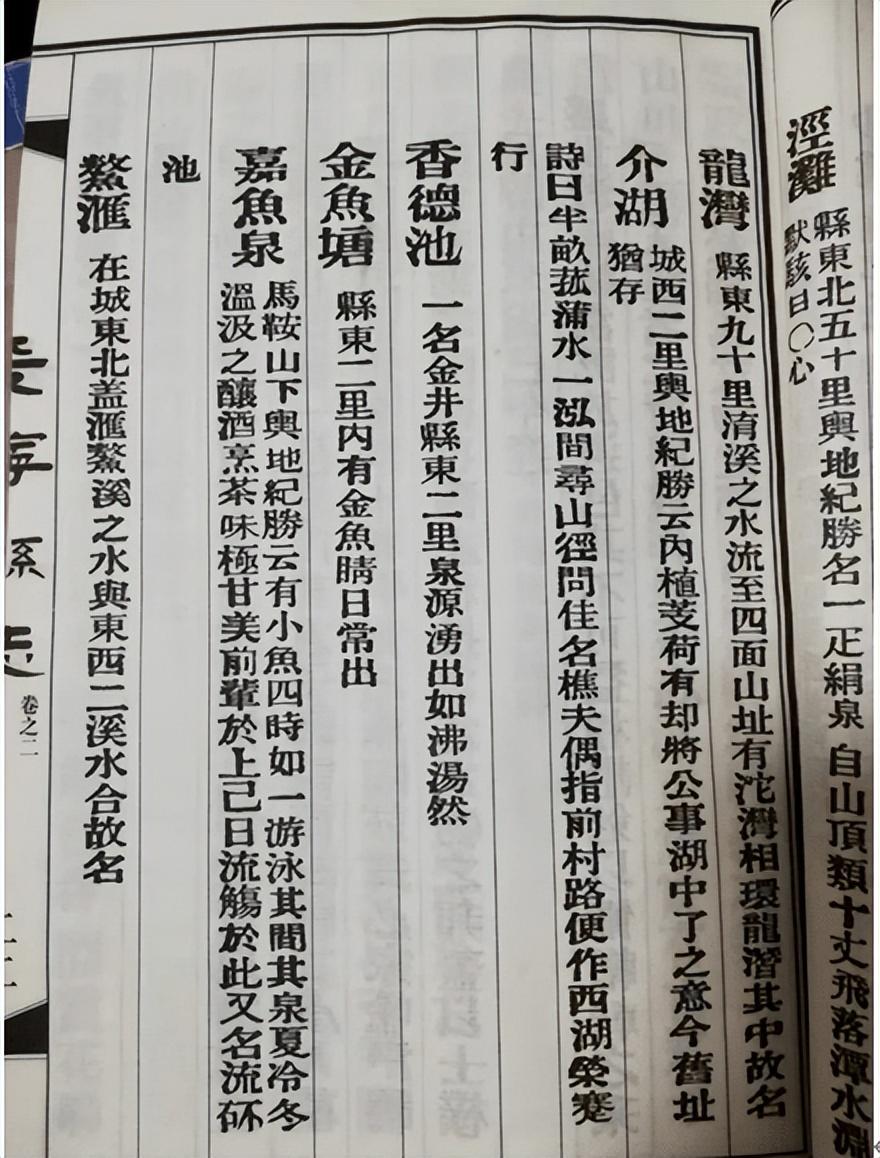 涇灘
縣東北五十里輿地紀勝名一疋絹泉 自山頂類十丈飛落潭水淵
默該日〇心
龍灣 縣東九十里淯溪之水流至四面山址有沱灣相環龍潛其中故名
介湖
城西二里輿地紀勝云內植芰荷有却將公事湖中了之意今舊址
猶存
詩曰半畝菰蒲水一泓間尋山徑問佳名樵夫偶指前村路便作西湖榮蹇
行
香德池 一名金井縣東二里泉源湧出如沸湯然
金魚塘 縣東二里內有金魚晴日常出
嘉魚泉
馬鞍山下輿地紀勝云有小魚四時如一游泳其間其泉夏冷冬
溫汲之釀酒烹茶味極甘美前輩於上己日流觴於此又名流杯
池
鰲滙 在城東北盖滙鰲溪之水與東西二溪水合故名
縣志
卷之二